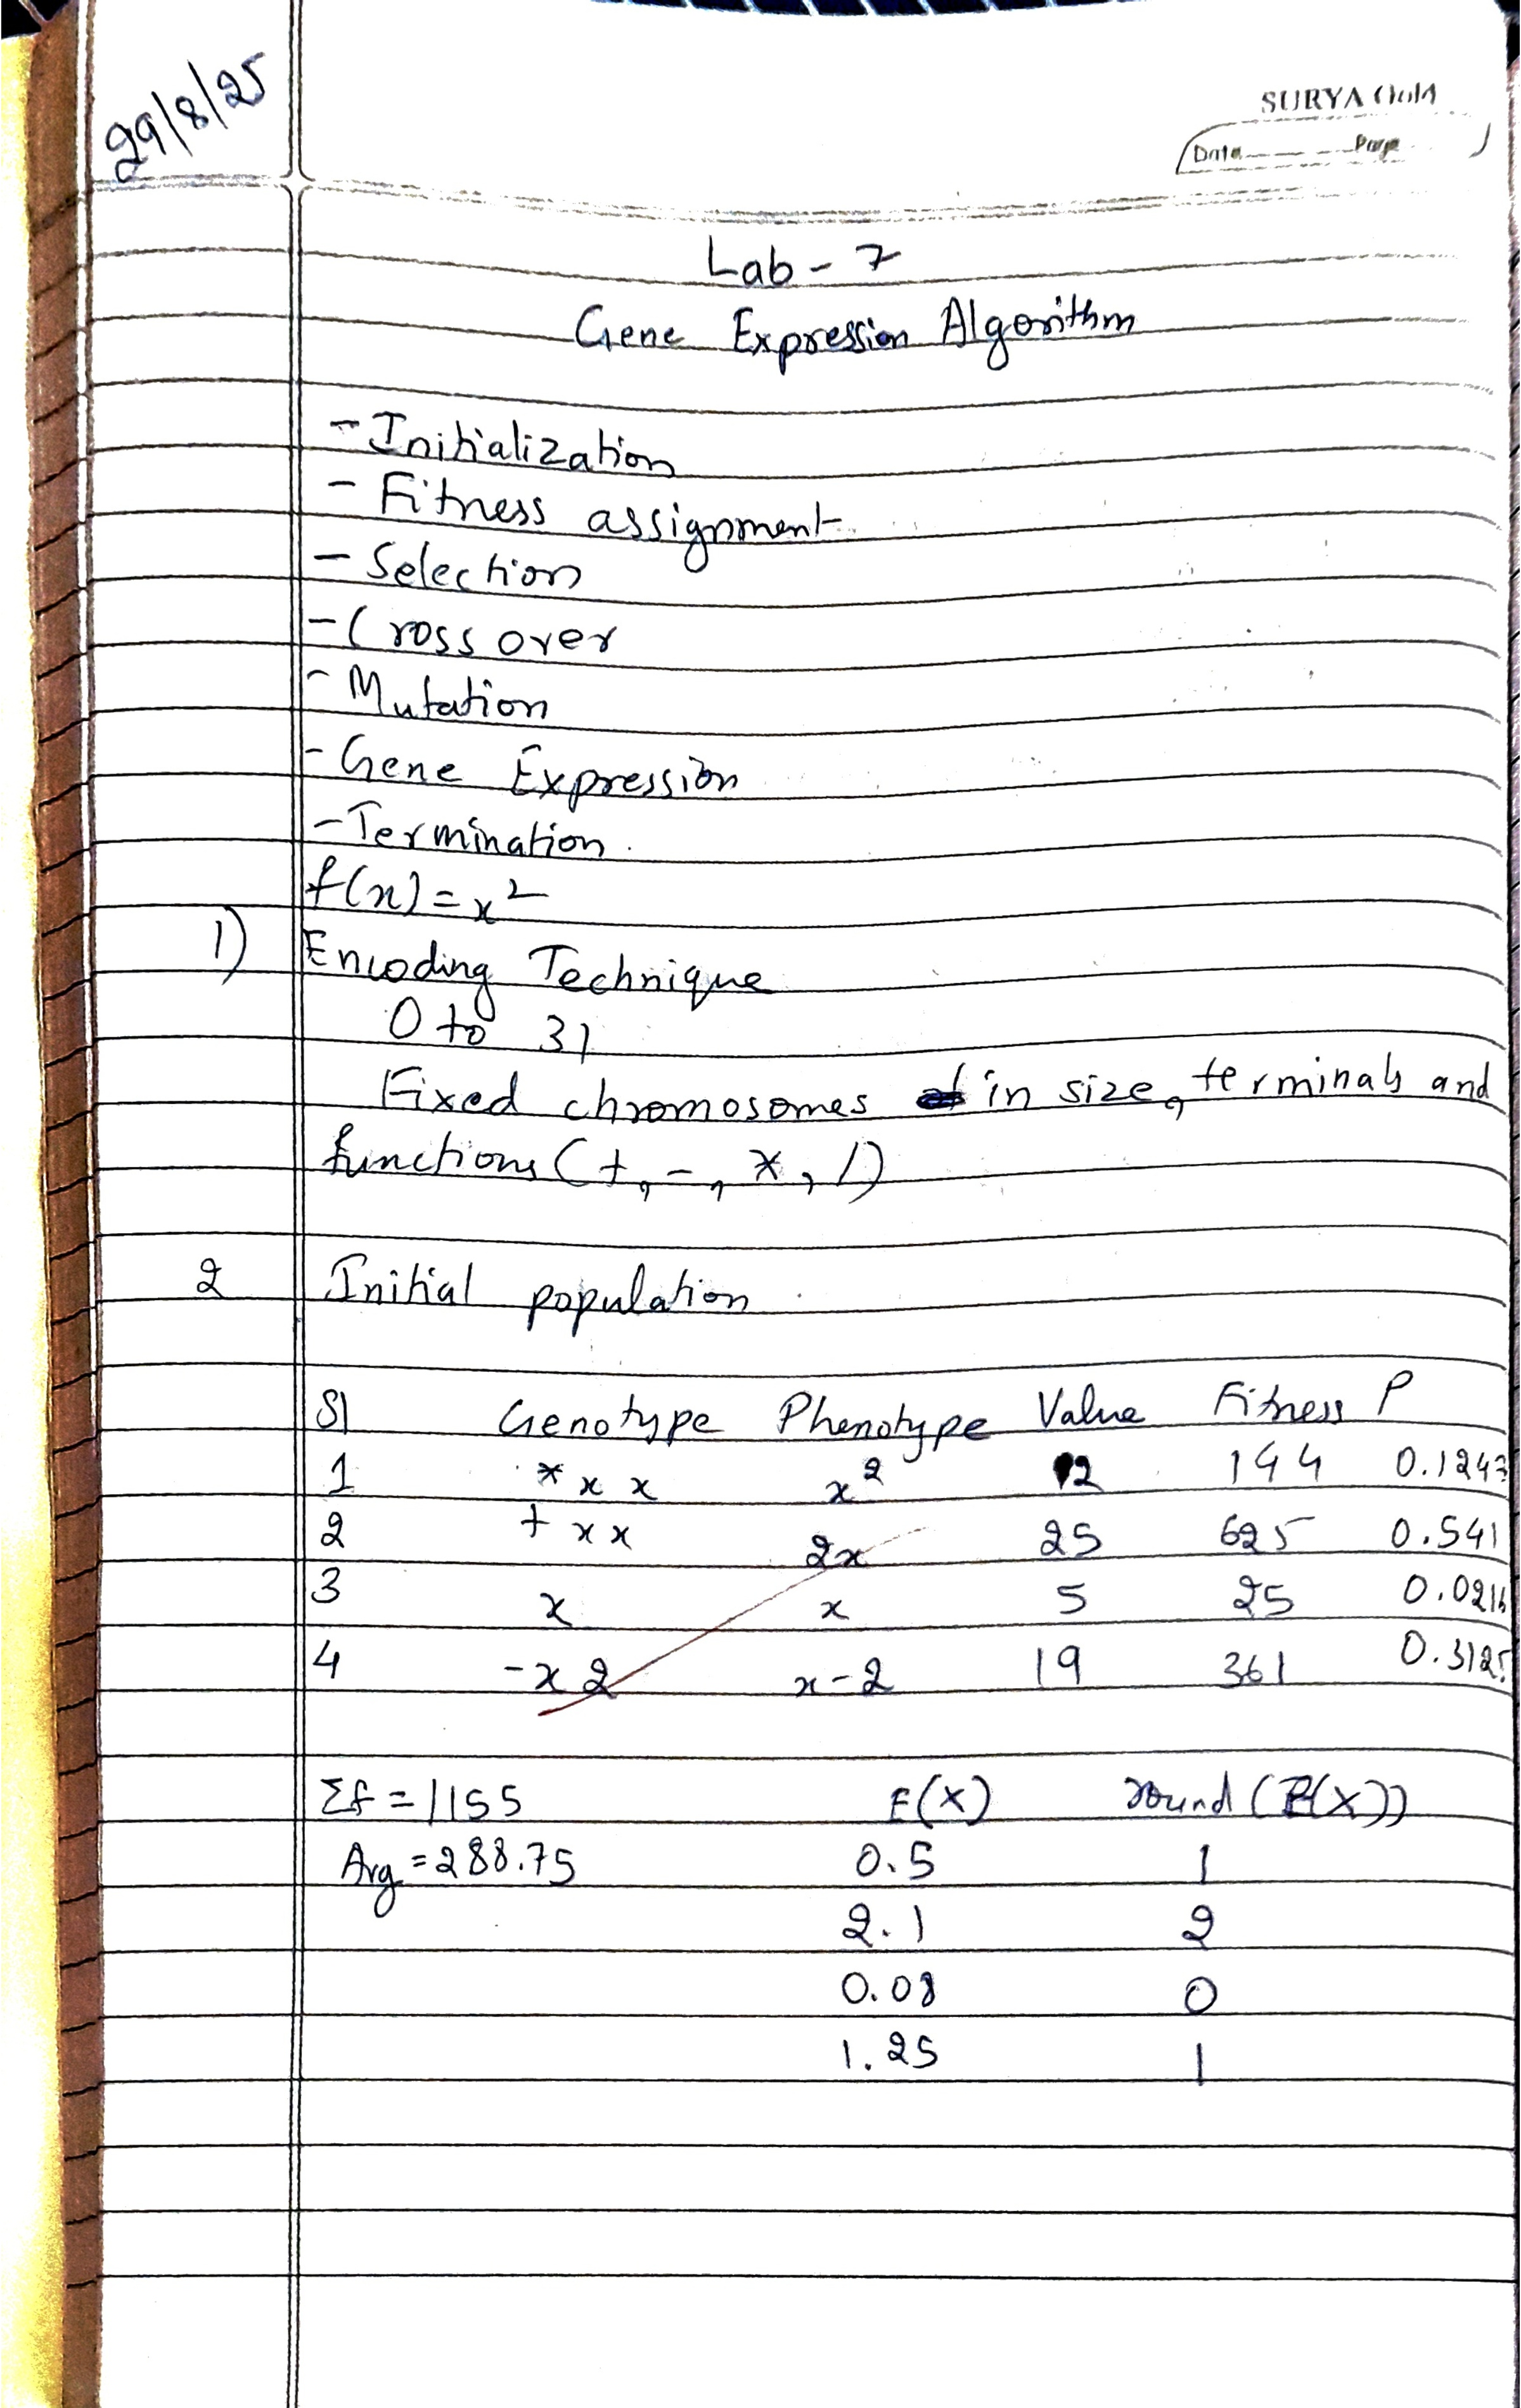 29/8/25
SURYA Gold
Date Page
Lab - 7
Gene Expression Algorithm
- Initialization
- Fitness assignment
- Selection
- Cross over
- Mutation
- Gene Expression
- Termination.
f(x) = x²
1) Encoding Technique
0 to 31
Fixed chromosomes in size, terminals and
functions (+, -, *, /)
2 Initial population
Sl Genotype Phenotype Value Fitness P
1 * x x x² 12 144 0.1247
2 + x x 2x 25 625 0.541
3 x x 5 25 0.0216
4 - x 2 x - 2 19 361 0.3125
Σf = 1155 E(X) round (E(X))
Avg = 288.75 0.5 1
2.1 2
0.08 0
1.25 1